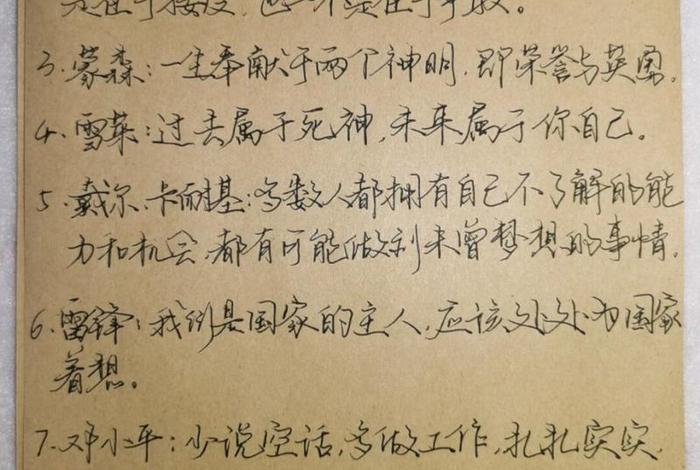 是在于接受,也不是在于争取。
3.蒙森:一生奉献于两个神明,即荣誉与英勇。
4.雪莱:过去属于死神,未来属于你自己。
5.戴尔.卡耐基:多数人都拥有自己不了解的能
力和机会,都有可能做到未曾梦想的事情。
6.雷锋:我们是国家的主人,应该处处为国家
着想。
7.邓小平:少说空话,多做工作,扎扎实实,